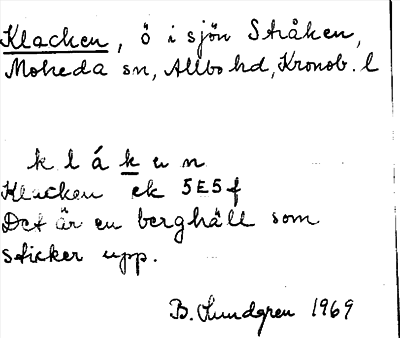 Klacken, ö i sjön Stråken,
Moheda sn, Allbo hd, Kronob. l
k l á k u n
Klacken ek 5E5f
Det är en berghäll som
sticker upp.
B. Lundgren 1969